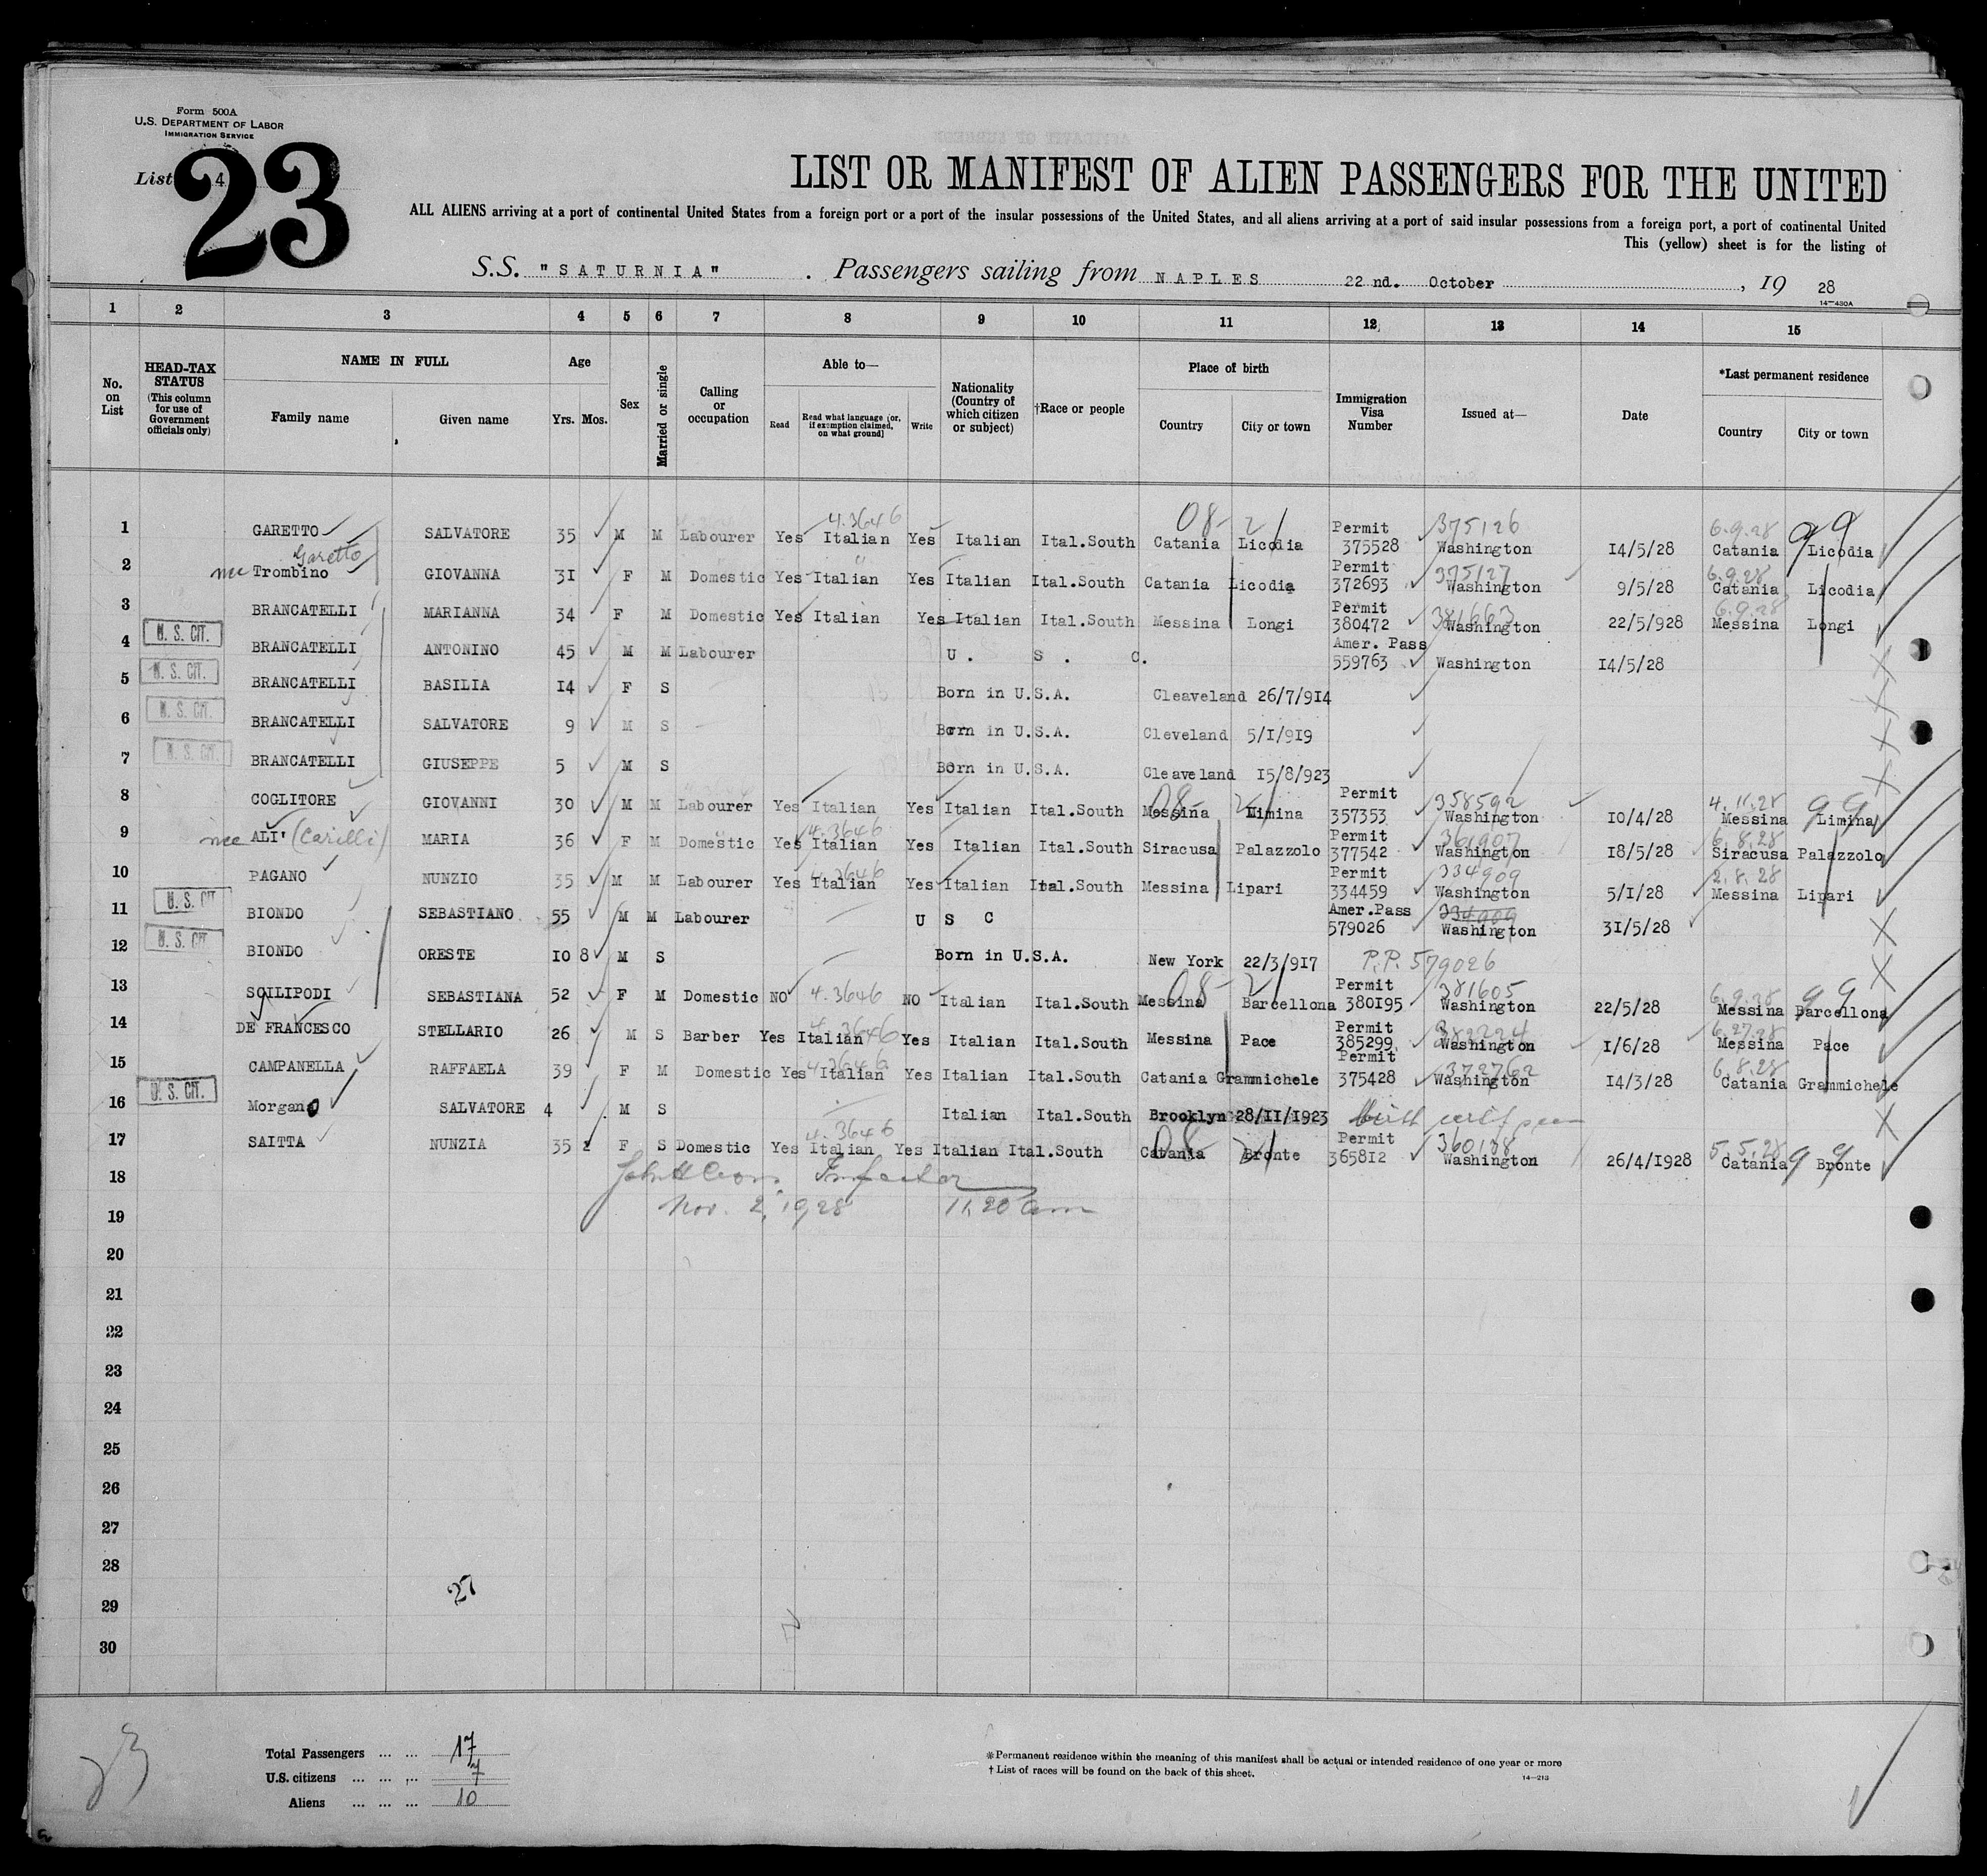 Form 500A
U.S. DEPARTMENT OF LABOR
IMMIGRATION SERVICE
List 4
23
LIST OR MANIFEST OF ALIEN PASSENGERS FOR THE UNITED
ALL ALIENS arriving at a port of continental United States from a foreign port or a port of the insular possessions of the United States, and all aliens arriving at a port of said insular possessions from a foreign port, a port of continental United
This (yellow) sheet is for the listing of
S.S. "SATURNIA" . Passengers sailing from NAPLES 22 nd. October , 19 28
14—430A
1 2 3 4 5 6 7 8 9 10 11 12 13 14 15
No. on List
HEAD-TAX STATUS (This column for use of Government officials only)
NAME IN FULL
Family name Given name
Age
Yrs. Mos.
Sex
Married or single
Calling or occupation
Able to—
Read Read what language [or, if exemption claimed, on what ground] Write
Nationality (Country of which citizen or subject)
†Race or people
Place of birth
Country City or town
Immigration Visa Number
Issued at—
Date
*Last permanent residence
Country City or town
4.3646 08- 21 375126 6.9.28 99
1 GARETTO SALVATORE 35 M M Labourer Yes Italian Yes Italian Ital.South Catania Licodia Permit 375528 Washington 14/5/28 Catania Licodia
Garetto 375127 6.9.28
2 nee Trombino GIOVANNA 31 F M Domestic Yes Italian Yes Italian Ital.South Catania Licodia Permit 372693 Washington 9/5/28 Catania Licodia
381663 6.9.28
3 BRANCATELLI MARIANNA 34 F M Domestic Yes Italian Yes Italian Ital.South Messina Longi Permit 380472 Washington 22/5/928 Messina Longi
4 U. S. CIT. BRANCATELLI ANTONINO 45 M M Labourer U. S. C. Amer. Pass 559763 Washington 14/5/28
5 U. S. CIT. BRANCATELLI BASILIA 14 F S Born in U.S.A. Cleaveland 26/7/914
6 U. S. CIT. BRANCATELLI SALVATORE 9 M S Born in U.S.A. Cleveland 5/1/919
7 U. S. CIT. BRANCATELLI GIUSEPPE 5 M S Born in U.S.A. Cleaveland 15/8/923
08- 21 358592 4.11.28 99
8 COGLITORE GIOVANNI 30 M M Labourer Yes Italian Yes Italian Ital.South Messina Limina Permit 357353 Washington 10/4/28 Messina Limina
4.3646 361907 6.8.28
9 nee ALI' (Carilli) MARIA 36 F M Domestic Yes Italian Yes Italian Ital.South Siracusa Palazzolo Permit 377542 Washington 18/5/28 Siracusa Palazzolo
4.3646 334909 2.8.28
10 PAGANO NUNZIO 35 M M Labourer Yes Italian Yes Italian Ital.South Messina Lipari Permit 334459 Washington 5/1/28 Messina Lipari
334909
11 U. S. CIT BIONDO SEBASTIANO 55 M M Labourer U S C Amer.Pass 579026 Washington 31/5/28
12 U. S. CIT. BIONDO ORESTE 10 8 M S Born in U.S.A. New York 22/3/917 P.P. 579026
4.3646 08- 21 381605 6.9.28 99
13 SCILIPODI SEBASTIANA 52 F M Domestic NO NO Italian Ital.South Messina Barcellona Permit 380195 Washington 22/5/28 Messina Barcellona
4.3646 6.27.28
14 DE FRANCESCO STELLARIO 26 M S Barber Yes Italian Yes Italian Ital.South Messina Pace Permit 385299 Washington 1/6/28 Messina Pace
4.3646 372762 6.8.28
15 CAMPANELLA RAFFAELA 39 F M Domestic Yes Italian Yes Italian Ital.South Catania Grammichele Permit 375428 Washington 14/3/28 Catania Grammichele
16 U. S. CIT. Morgano SALVATORE 4 M S Italian Ital.South Brooklyn 28/11/1923 Birth
4.3646 08 21 360138 5.5.28 99
17 SAITTA NUNZIA 35 2 F S Domestic Yes Italian Yes Italian Ital.South Catania Bronte Permit 365812 Washington 26/4/1928 Catania Bronte
18
Nov. 2, 1928 11.20 am
19
20
21
22
23
24
25
26
27
28
27
29
30
23
Total Passengers ... ... 17
U.S. citizens ... ... ... 7
Aliens ... ... ... 10
*Permanent residence within the meaning of this manifest shall be actual or intended residence of one year or more
† List of races will be found on the back of this sheet.
14—213